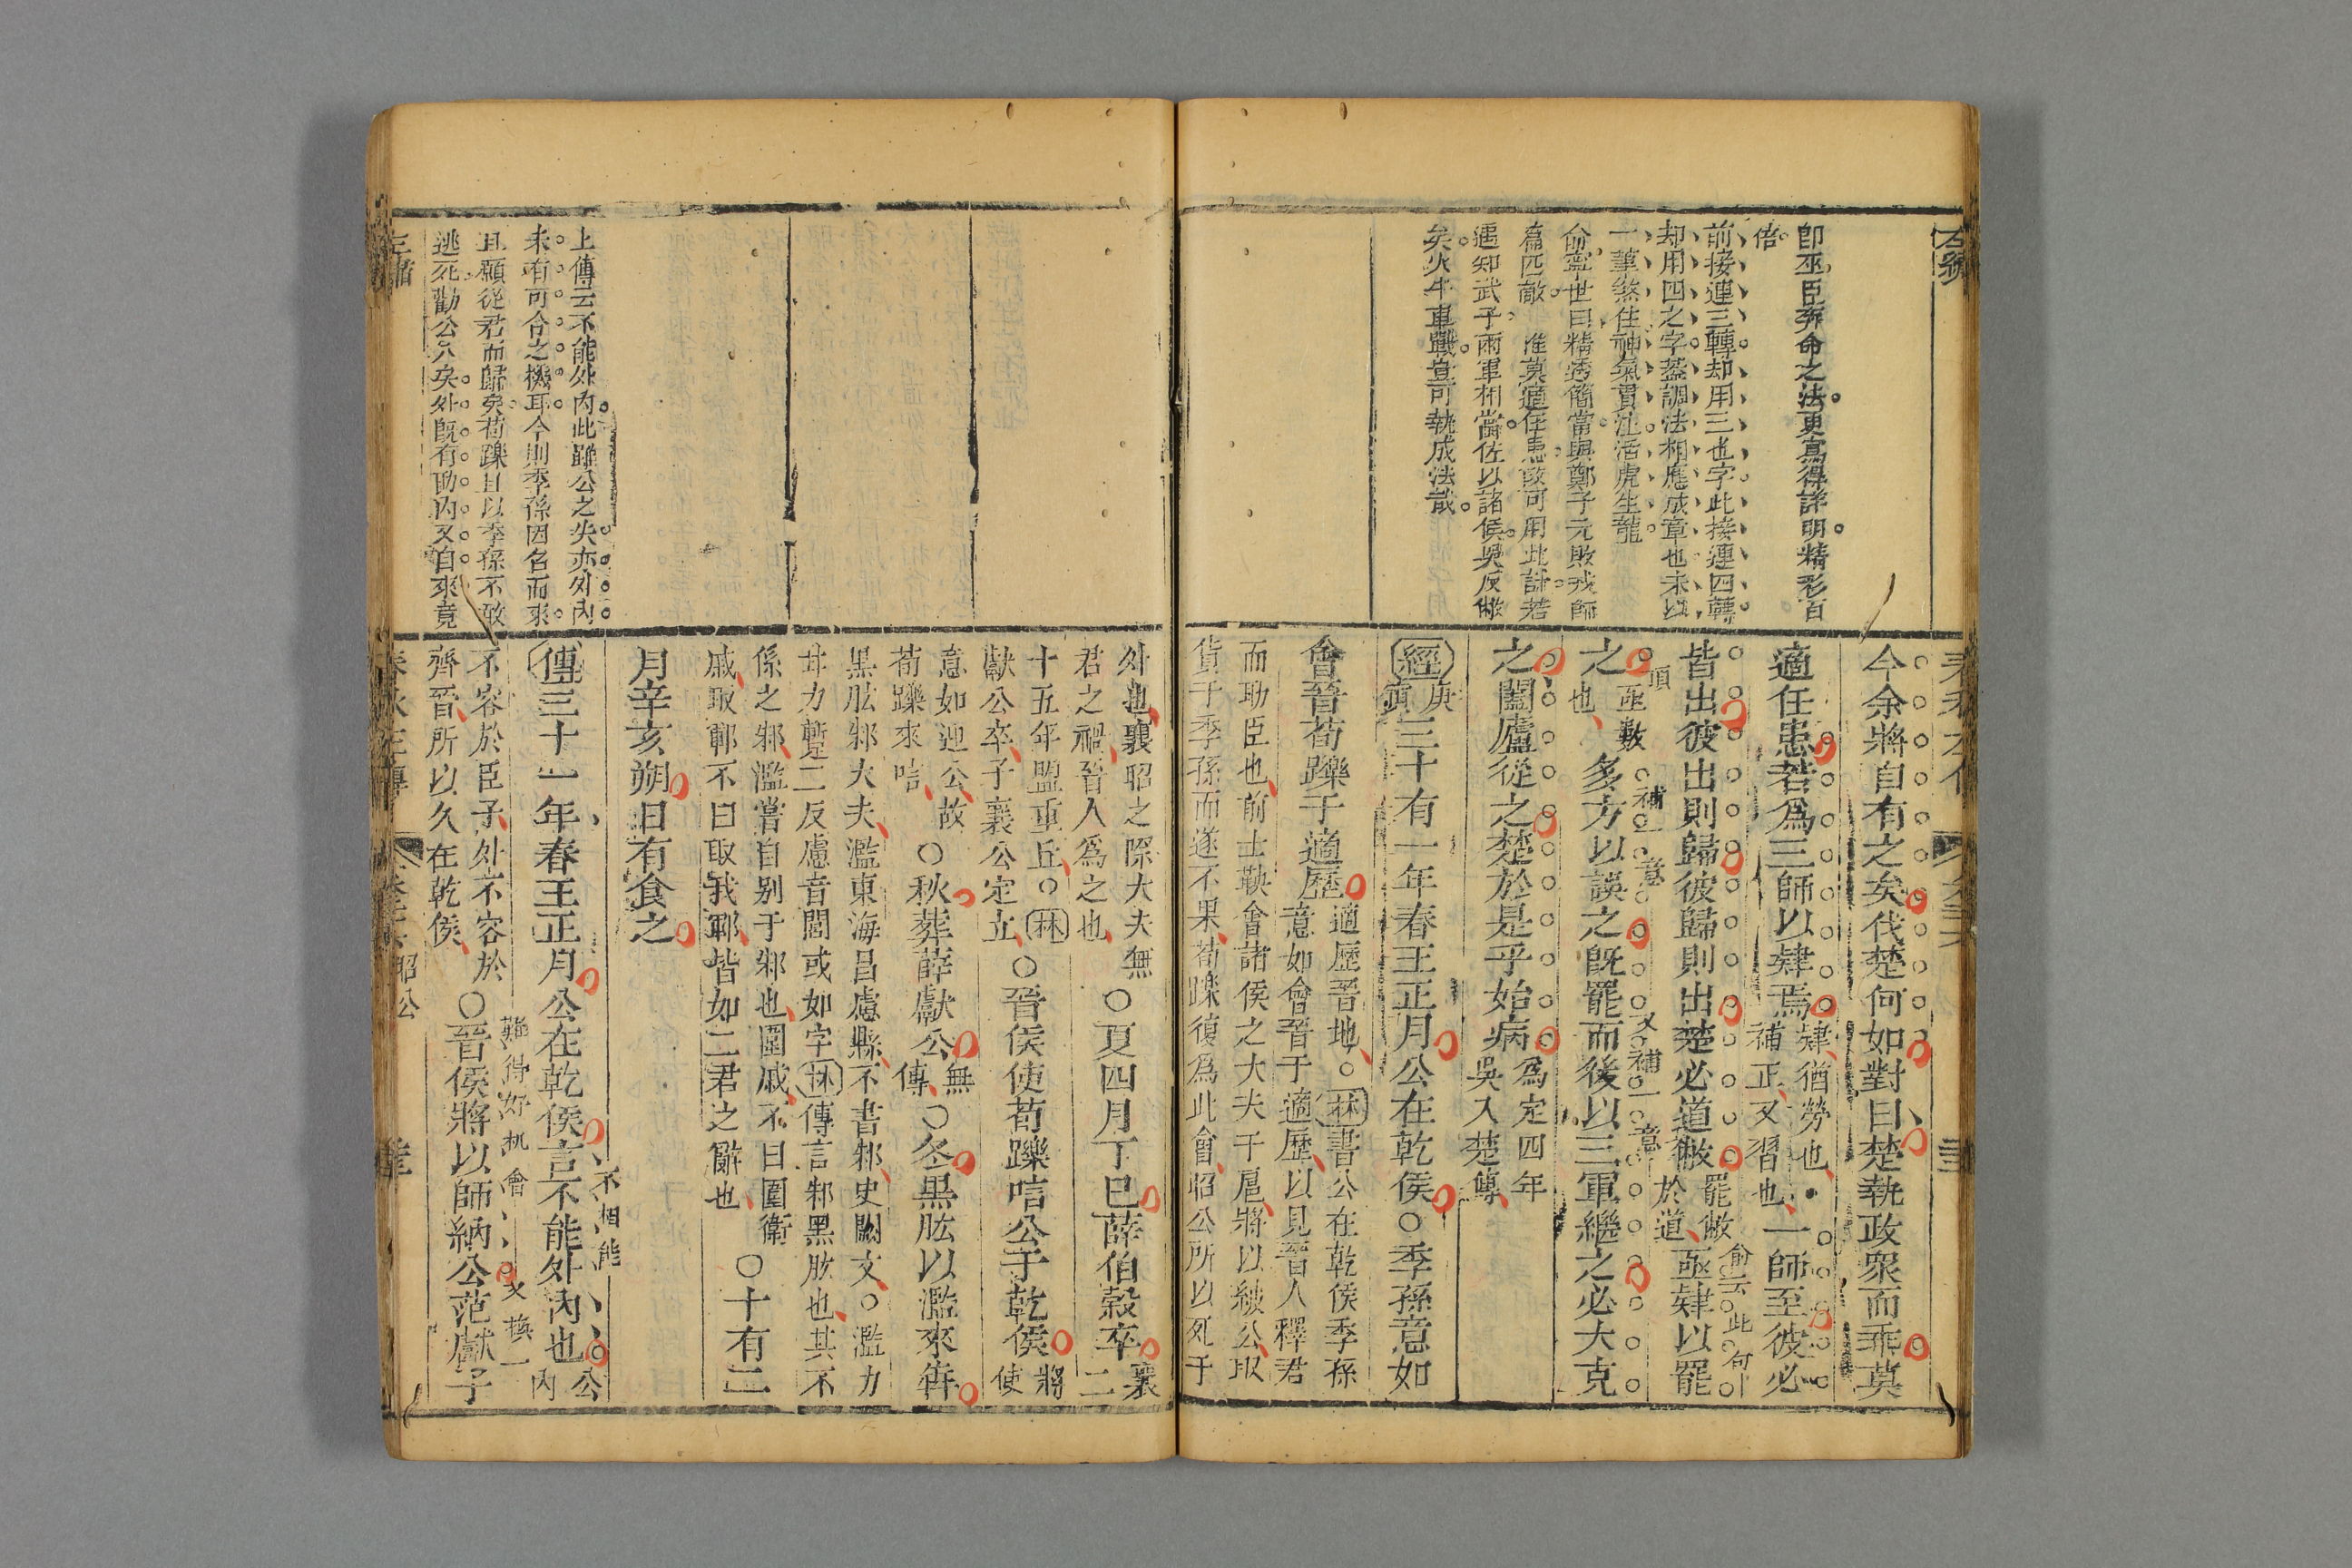 即巫臣奔命之法更寫得詳明精彩百
倍
前接連三轉却用三也字此接連四轉
却用四之字葢調法相應成章也未以
一筆煞住神氣貫注活虎生龍
俞寧世曰精透簡當與鄭子元敗戎師
篇匹敵 惟莫適任患故可用此計若
遇知武子兩軍相當佐以諸侯吳反傲
矣火牛車戰豈可執成法哉
今余將自有之矣伐楚何如對曰楚執政眾而乖莫
適任患若為三師以肄焉肄猶勞也補正又習也一師至彼必
皆出彼出則歸彼歸則出楚必道敝罷敝於道亟肄以罷
俞云此句
之亟數也多方以誤之旣罷而後以三軍繼之必大克
頂
補一意
又補一意
之闔廬從之楚於是乎始病為定四年吳入楚傳
經庚寅三十有一年春王正月公在乾侯○季孫意如
會晉荀躒于適歷適歷晉地○林書公在乾侯季孫
意如會晉于適歷以見晉人釋君
而助臣也前士鞅會諸侯之大夫于扈將以納公取
貨于季孫而遂不果荀躒復為此會昭公所以死于
外也襄昭之際大夫無
君之禍晉人為之也○夏四月丁巳薛伯穀卒襄二
十五年盟重丘○林
獻公卒子襄公定立○晉侯使荀躒唁公于乾侯將使
意如迎公故
荀躒來唁○秋葬薛獻公無傳○冬黑肱以濫來奔
黑肱邾大夫濫東海昌慮縣不書邾史闕文○濫力
甘力蹔二反慮音閭或如字林傳言邾黑肱也其不
係之邾濫嘗自別于邾也圍戚不曰圍衛
戚取鄆不曰取我鄆皆如二君之辭也○十有二
月辛亥朔日有食之
上傳云不能外內此雖公之失亦外內
未有可合之機耳今則季孫因名而來
且願從君而歸矣荀躒且以季孫不敢
逃死勸公入矣外旣有助內又自來竟
傳三十一年春王正月公在乾侯言不能外內也公內
不相能
不容於臣子外不容於
齊晉所以久在乾侯○晉侯將以師納公范獻子
難得好机會
又換一
昭公